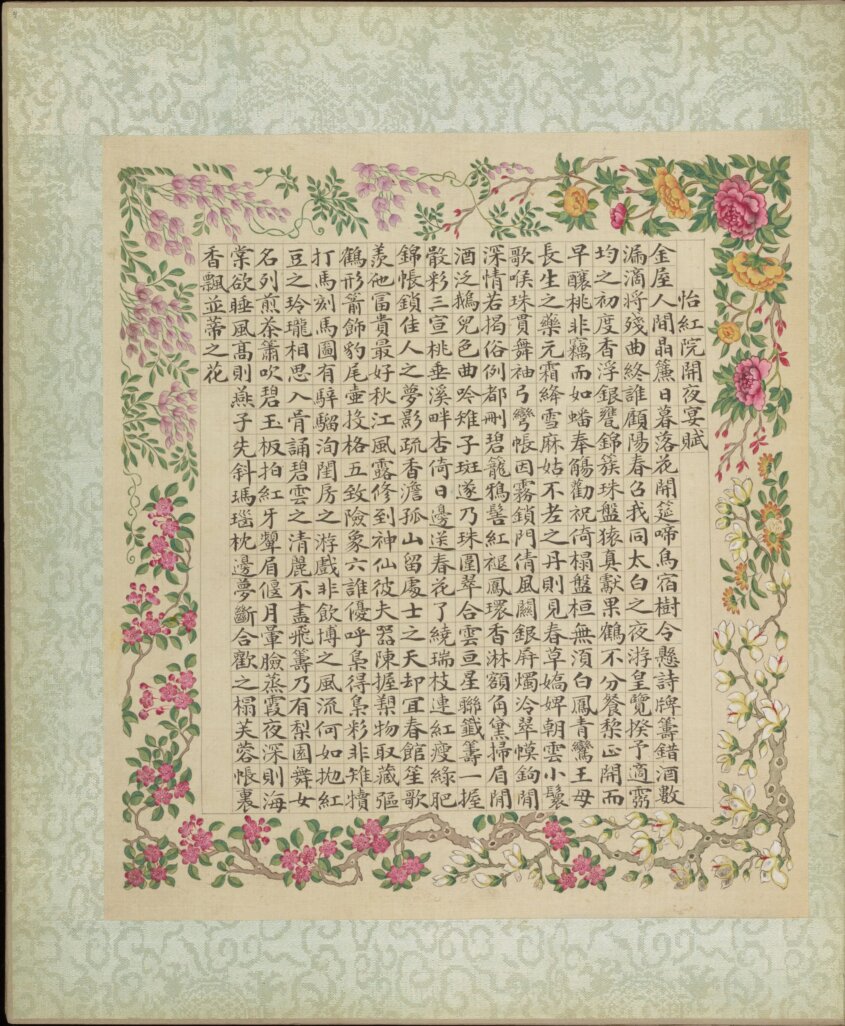 怡紅院開夜宴賦
金屋人閒晶簾日暮落花開筵啼鳥宿樹令懸詩牌籌錯酒數
漏滴將殘曲終誰顧陽春召我同太白之夜游皇覽揆予適霛
均之初度香浮銀甕錦簇珠盤猿真獻果鶴不分餐黎正開而
早釀桃非竊而如蟠奉觴勸祝倚榻盤桓無須白鳳青鸞王母
長生之藥元霜絳雪麻姑不老之丹則見春草嬌婢朝雲小鬟
歌喉珠貫舞袖弓彎帳因霧鎖門倩風關銀屏燭冷翠幙鉤閒
深情若揭俗例都刪碧籠鴉髻紅褪鳳環香淋額角黛掃眉間
酒泛鵝兒色曲吟雉子斑遂乃珠圍翠合雲亘星聯籤籌一握
骰彩三宣桃垂溪畔杏倚日邊送春花了繞瑞枝連紅瘦綠肥
錦帳鎖佳人之夢影疏香澹孤山留處士之天却宜春館笙歌
羨他富貴最好秋江風露修到神仙彼夫器陳握槊物取藏彄
鶴形箭飾豹尾壺投格五致險象六誰優呼梟得梟彩非雉犢
打馬刻馬圖有騂騮洵閨房之游戲非飲博之風流何如拋紅
豆之玲瓏相思入骨誦碧雲之清麗不盡飛籌乃有梨園舞女
名列煎茶簫吹碧玉板拍紅牙顰眉偃月暈臉蒸霞夜深則海
棠欲睡風髙則燕子先斜瑪瑙枕邊夢斷合歡之榻芙蓉帳裏
香飄並蒂之花